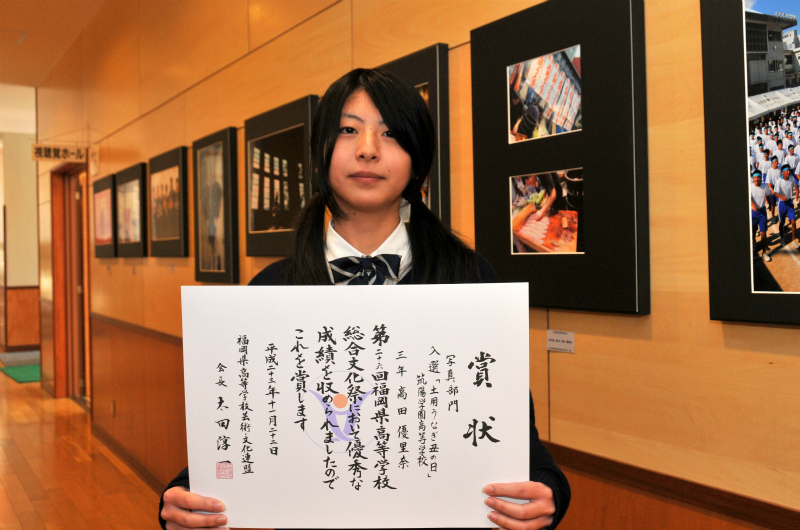 視聴覚ホール
賞状
写真部門
入選「土用うなぎ丑の日」
筑陽学園高等学校
三年 高田 優里奈
第二十六回福岡県高等学校
総合文化祭において優秀な
成績を収められましたので
これを賞します
平成二十三年十一月二十三日
福岡県高等学校芸術・文化連盟
会長 太田 淳一